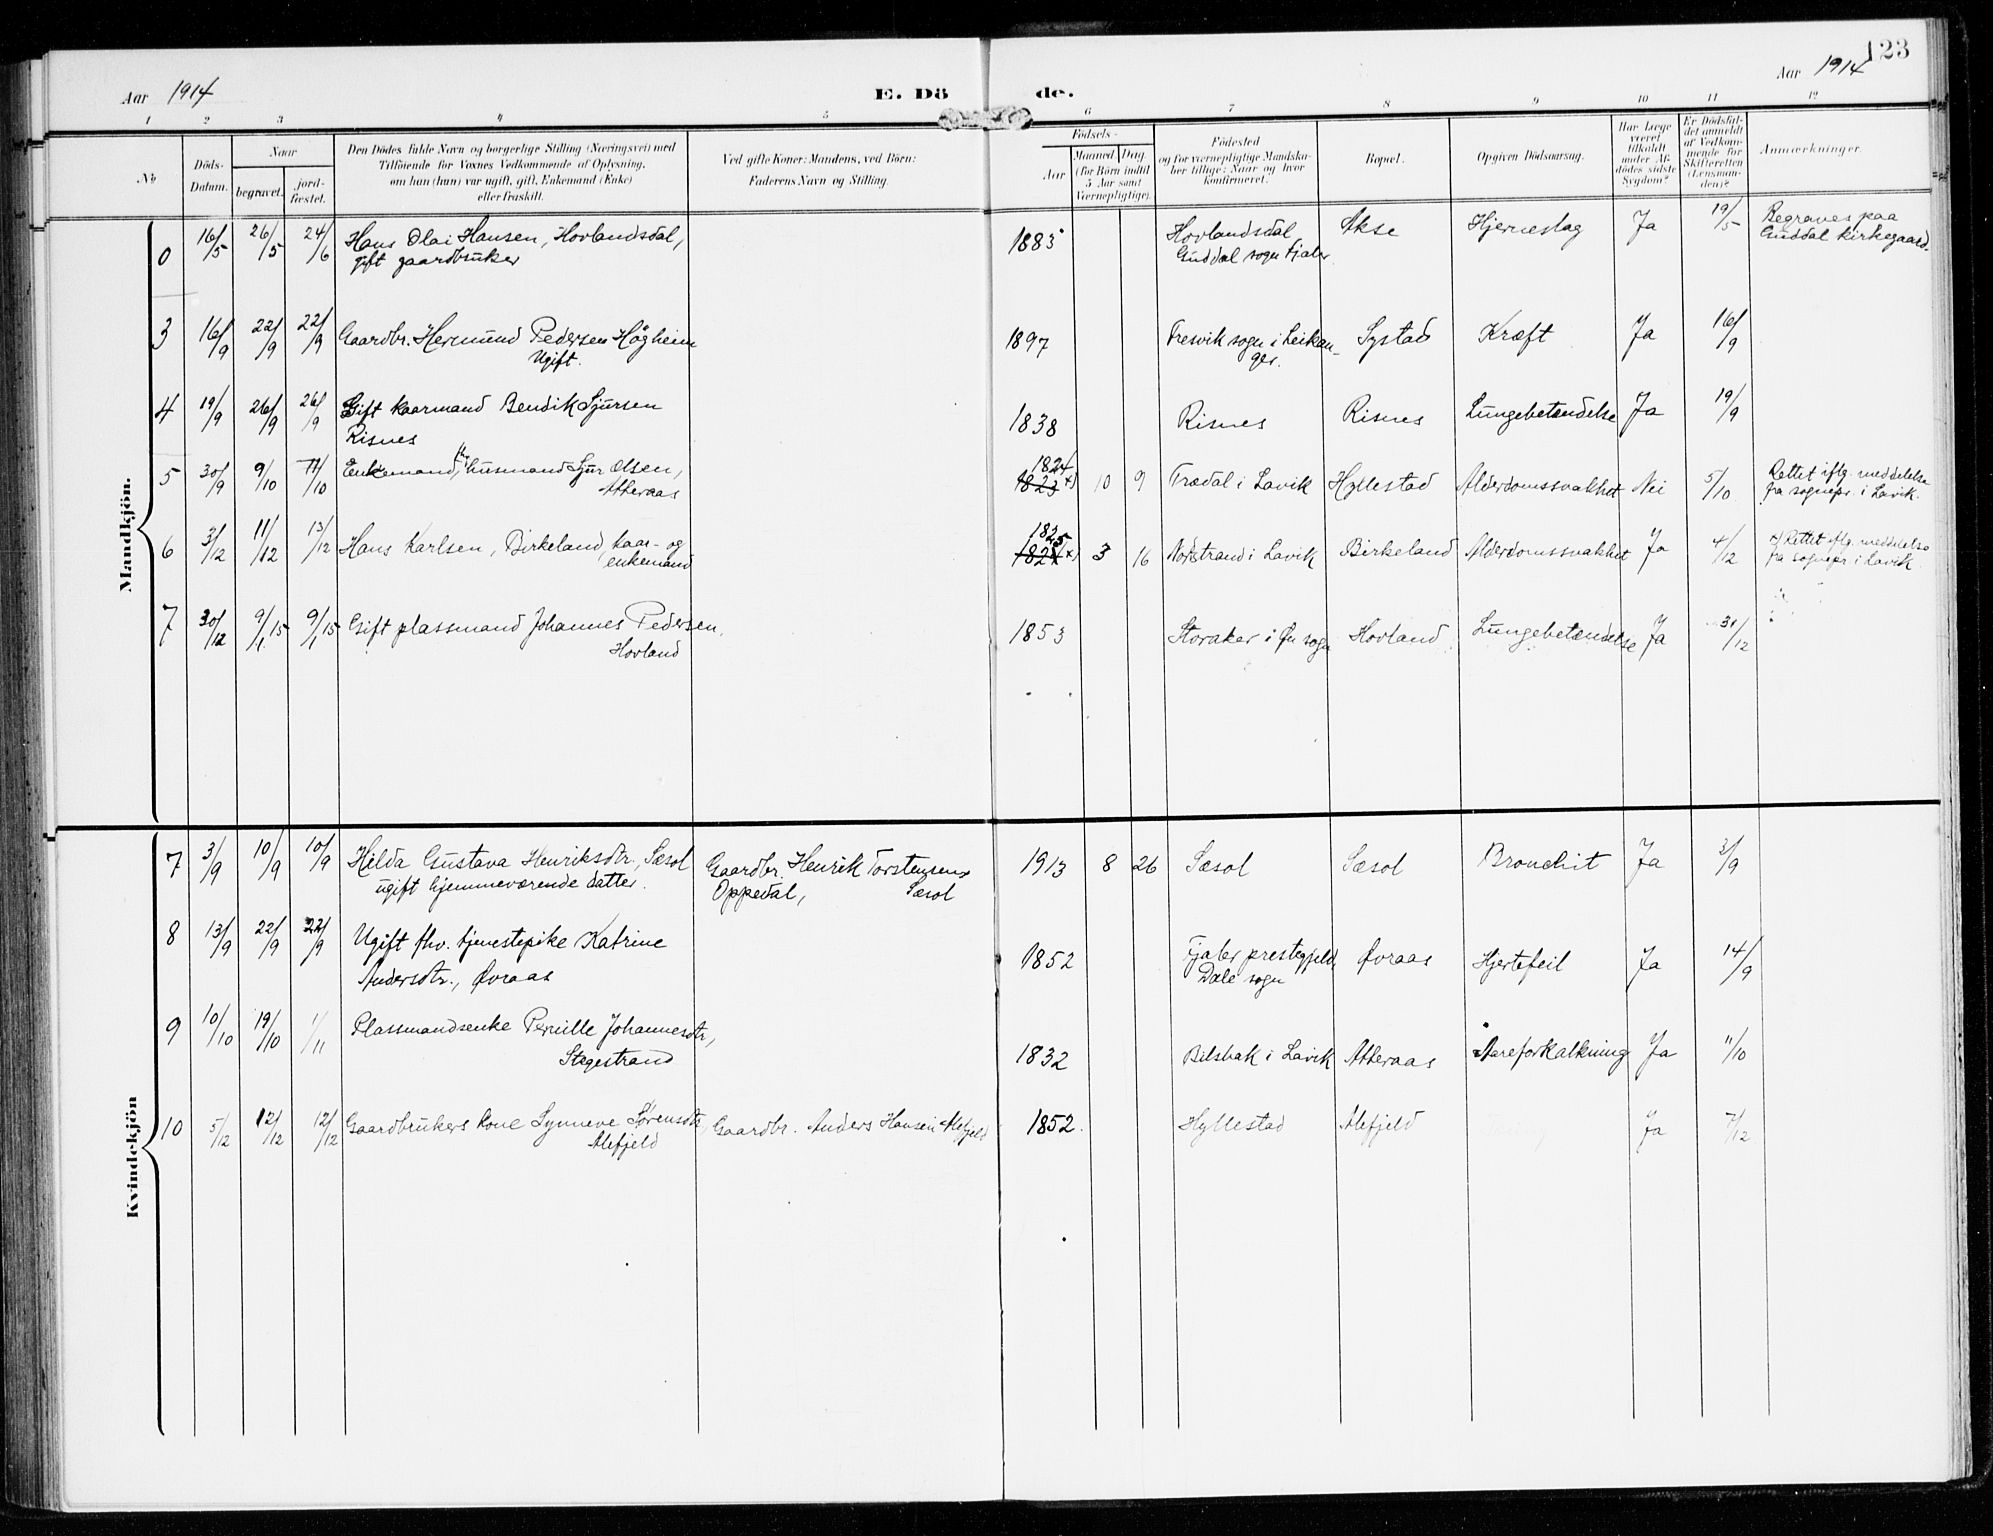 123
Aar 1914 E. Dö de. Aar 1914
1 2 3 4 5 6 7 8 9 10 11 12
No
Döds-
Datum.
Naar
begravet.
jord-
fæstet.
Den Dödes fulde Navn og borgerlige Stilling (Næringsvei) med
Tilföiende for Voxnes Vedkommende af Oplysning,
om han (hun) var ugift, gift, Enkemand (Enke)
eller fraskilt.
Ved gifte Koner: Mandens, ved Börn:
Faderens Navn og Stilling.
Födsels-
Aar
Maaned Dag.
(for Börn indtil
5 Aar samt
Værnepligtige).
Födested
og for værnepligtige Mandskaber
tillige: Naar og hvor
konfirmeret.
Bopæl.
Opgiven Dödsaarsag.
Har Læge
været
tilkaldt
under Af-
dödes sidste
Sygdom?
Er Dödsfal-
det anmeldt
af Vedkom-
mende for
Skifteretten
(Lensman-
den)?
Anmærkninger.
Mandkjön.
0 16/5 26/5 24/6 Hans Olai Hansen, Hovlandsdal, 1885 Hovlandsdal Akse Hjerneslag Ja 19/5 Begraves paa
gift gaardbruker Guddal sogn Fjaler Guddal kirkegaard.
3 16/9 22/9 22/9 Gaardbr. Hermund Pedersen Högheim 1897 Fresvik sogn i Leikan- Systad Kræft Ja 16/9
Ugift. ger.
4 19/9 26/9 26/9 Gift kaarmand Bendik Sjursen 1838 Risnes Risnes Lungebetændelse Ja 19/9
Risnes
1824
5 30/9 9/10 11/10 Enkemand, fhv. husmand Sjur Olsen, 1823 x) 10 9 Trædal i Lavik Hyllestad Alderdomssvakhet Nei 5/10 Rettet iflg. meddelelse
Atteraas fra sognepr. i Lavik.
1825
6 3/12 11/12 13/12 Hans Karlsen, Birkeland, kaar- og 1824 x) 3 16 Nordstrand i Lavik Birkeland Alderdomssvakhet Ja 4/12 x) Rettet iflg. meddelelse
enkemand fra sognepr. i Lavik.
7 30/12 9/1 15 9/1 15 Gift plassmand Johannes Pedersen, 1853 Storaker i Øn sogn Hovland Lungebetændelse Ja 31/12
Hovland
Kvindekjön
7 3/9 10/9 10/9 Hilda Gustava Henriksdtr., Sæsol Gaardbr. Henrik Torstensen 1913 8 26 Sæsol Sæsol Bronchit Ja 3/9
ugift hjemmeværende datter. Oppedal, Sæsol
8 13/9 22/9 22/9 Ugift fhv. tjenestepike Katrine 1852 Fjaler prestegjeld, Øvraas Hjertefeil Ja 14/9
Andersdtr., Øvraas Dale sogn
9 10/10 19/10 1/11 Plassmandsenke Pernille Johannesdtr, 1832 Bilsbak i Lavik Atteraas Aareforkalkning Ja 11/10
Stegestrand
10 5/12 12/12 12/12 Gaardbrukers kone Synneve Sørensdtr, Gaardbr. Anders Hansen Alefjeld 1852. Hyllestad Alefjeld Ja 7/12
Alefjeld